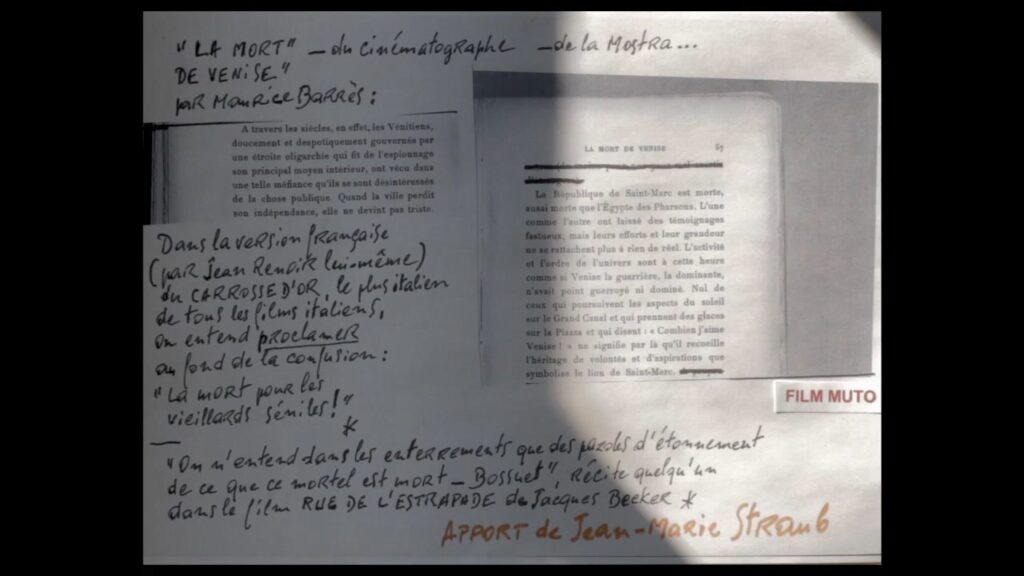 "LA MORT" – du cinématographe – de la Mostra...
DE VENISE"
par Maurice Barrès :
A travers les siècles, en effet, les Vénitiens,
doucement et despotiquement gouvernés par
une étroite oligarchie qui fit de l'espionnage
son principal moyen intérieur, ont vécu dans
une telle méfiance qu'ils se sont désintéressés
de la chose publique. Quand la ville perdit
son indépendance, elle ne devint pas triste.
Dans la version française
(par Jean Renoir lui-même)
du CARROSSE D'OR, le plus italien
de tous les films italiens,
on entend proclamer
au fond de la confusion :
"La mort pour les
vieillards séniles !"
*
LA MORT DE VENISE 67
La République de Saint-Marc est morte,
aussi morte que l'Égypte des Pharaons. L'une
comme l'autre ont laissé des témoignages
fastueux, mais leurs efforts et leur grandeur
ne se rattachent plus à rien de réel. L'activité
et l'ordre de l'univers sont à cette heure
comme si Venise la guerrière, la dominante,
n'avait point guerroyé ni dominé. Nul de
ceux qui poursuivent les aspects du soleil
sur le Grand Canal et qui prennent des glaces
sur la Piazza et qui disent : « Combien j'aime
Venise ! » ne signifie par là qu'il recueille
l'héritage de volontés et d'aspirations que
symbolise le lion de Saint-Marc.
FILM MUTO
"On n'entend dans les enterrements que des paroles d'étonnement
de ce que ce mortel est mort – Bossuet", récite quelqu'un
dans le film RUE DE L'ESTRAPADE de Jacques Becker *
APPORT de Jean-Marie Straub